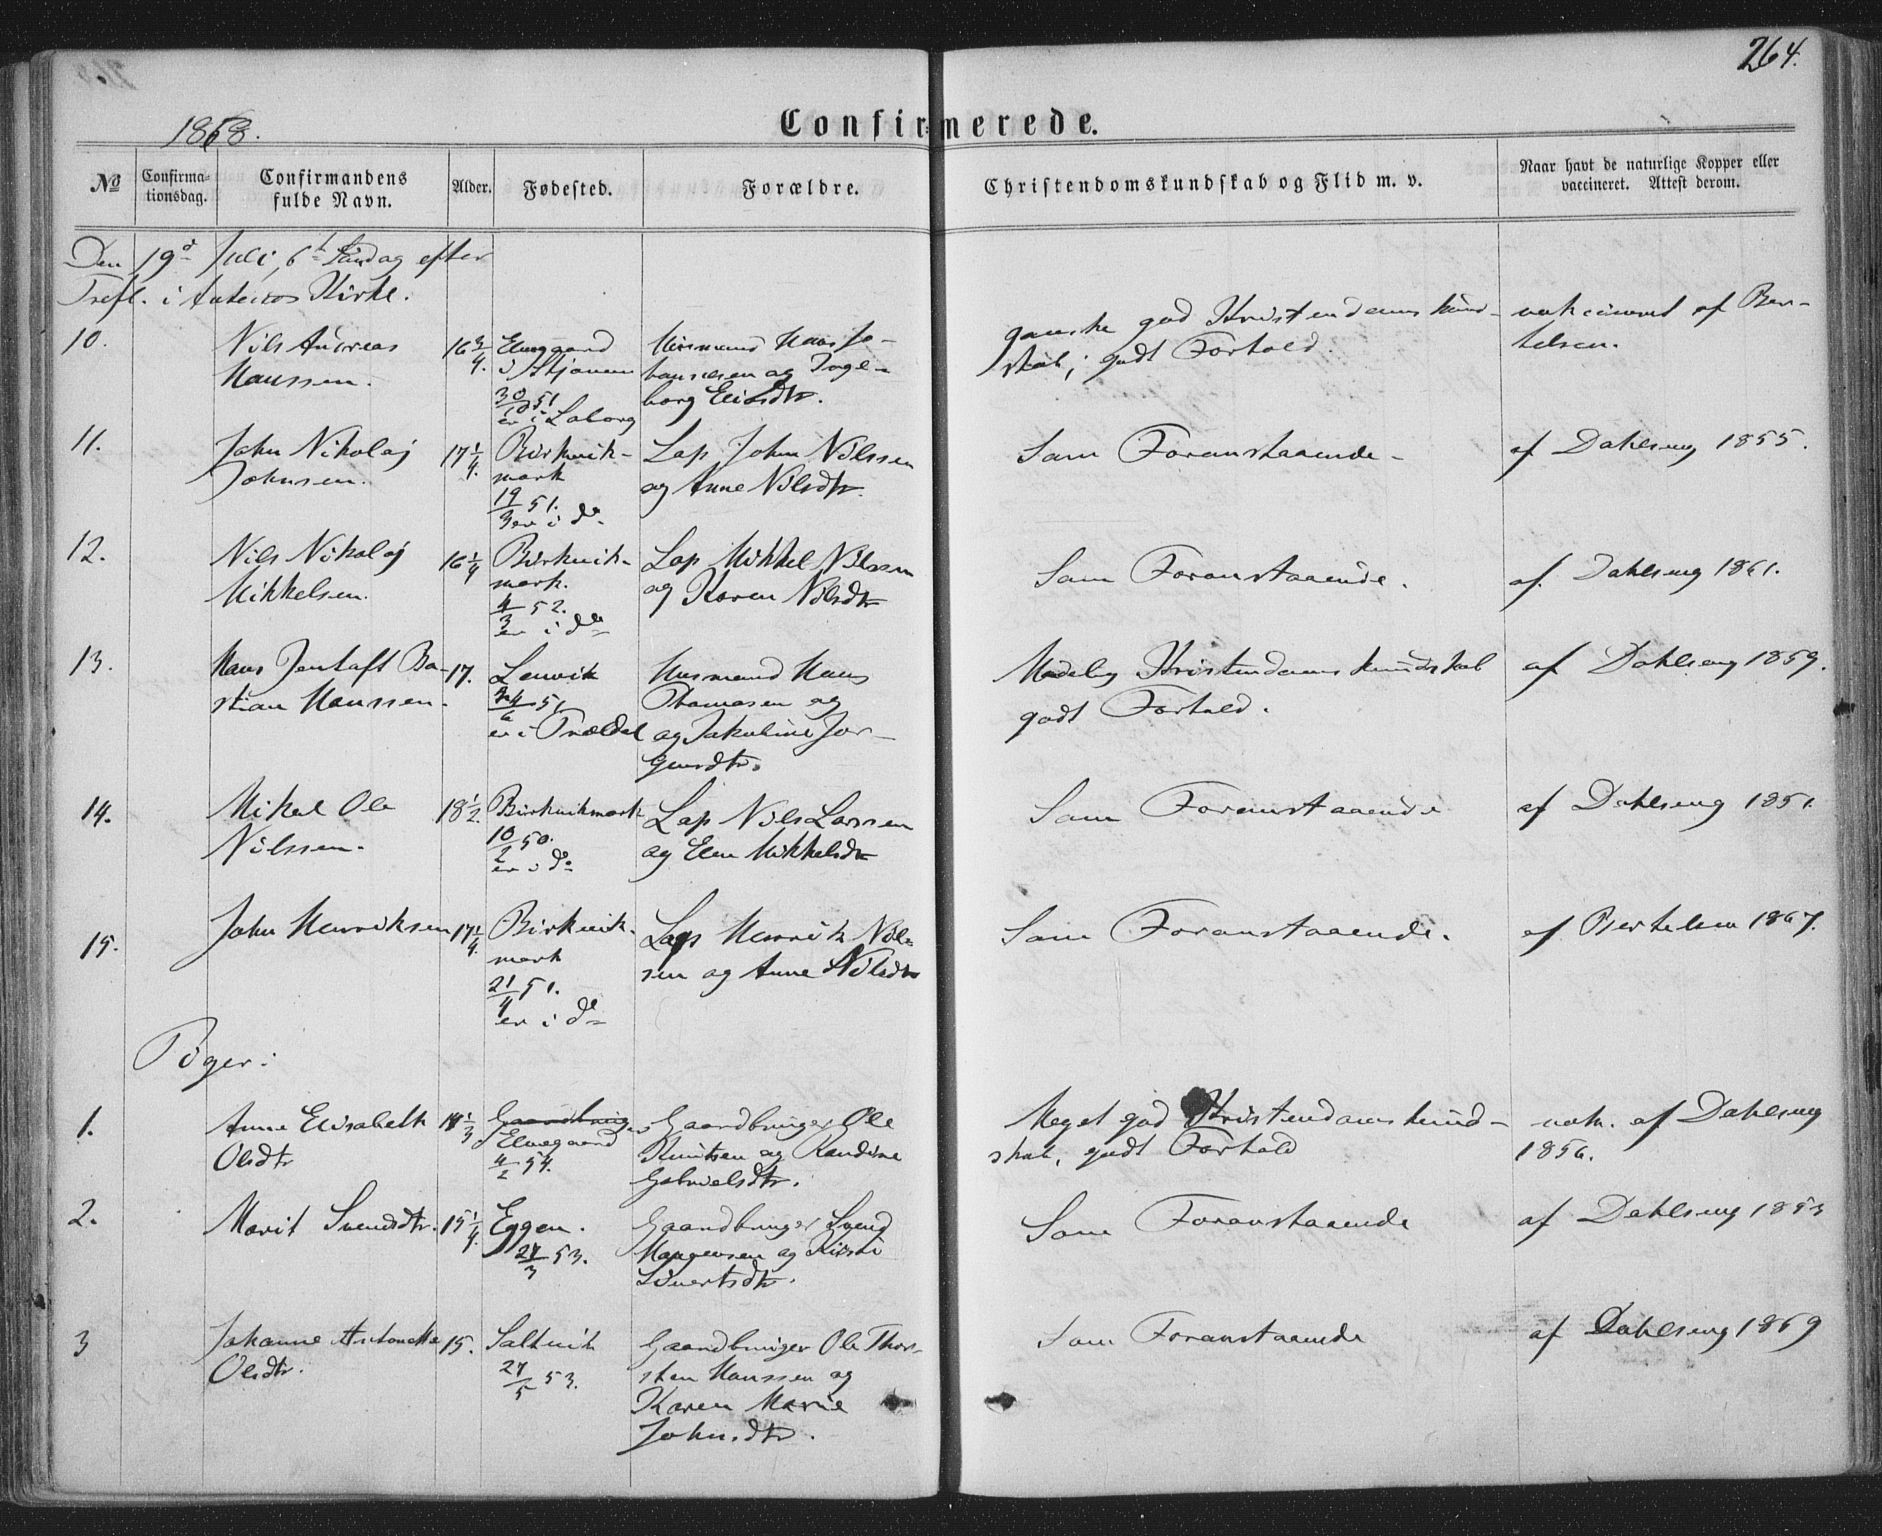 264.
1868.
Confirmerede.
No
Confirma-
tionsdag.
Confirmandens
fulde Navn.
Alder.
Fødested.
Forældre.
Christendomskundskab og Flid m. v.
Naar havt de naturlige Kopper eller
vaccineret. Attest derom.
Den 19d Juli, 6t Søndag efter
Tref. i Ankenes Kirke.
10.
Nils Andreas
Hanssen.
16 3/4.
Elvegaard
i Skjomen
30/10 51
er i Loborg
Husmand Hans Jo-
hannesen og Inge-
borg Eliasdtr.
ganske god Kristendomskund-
skab, godt Forhold.
vakcineret af Ber-
telsen.
11.
John Nikolaj
Johnsen.
17 1/4.
Birkvik-
mark
19/3 51.
er i do
Lap John Nilssen
og Anne Nilsdtr.
Som Foranstaaende.
af Dahlseng 1855.
12.
Nils Nikolaj
Mikkelsen.
16 1/4
Birkvik-
mark.
4/3 52.
er i do
Lap Mikkel Nilssen
og Karen Nilsdtr
Som Foranstaaende.
af. Dahlseng 1861.
13.
Hans Jentoft Ba-
stian Hanssen.
17.
Lenvik
24/6 51
er i Trældal
Husmand Hans
Thomasen og
og Jakobine Jør-
gensdtr.
Maadelig Kristendomskundskab
godt Forhold.
af Dahlseng 1859.
14.
Mikal Ole
Nilssen.
18 1/2.
Birkvikmark
10/2 50.
er i do
Lap Nils Larsen
og Elen Mikkelsdtr
Som Foranstaaende
af Dahlseng 1851.
15.
John Henriksen
17 1/4.
Birkvik-
mark
21/4 51.
er i do
Lap Henrik Nils-
sen og Anne Nilsdtr
Som Foranstaaende.
af Bertelsen 1867.
Piger:
1.
Anne Elisabeth
Olsdtr
14 1/3
Elvegaard
4/2 54.
Gaardbruger Ole
Knutsen og Randine
Gabrielsdtr.
Meget god Kristendomskund-
skab, godt Forhold
vak. af Dahlseng
1856.
2.
Marit Svendsdtr.
15 1/4.
Eggen.
27/3 53.
Gaardbruger Svend
Mogensen og Kirsti
Sivertsdtr.
Som Foranstaaende
af Dahlseng 1853
3
Johanne Antonette
Olsdtr.
15.
Saltvik
27/5 53.
Gaardbruger Ole Thor-
sten Hanssen og
Karen Marie
Johnsdtr.
Som Foranstaaende
af Dahlseng 1859